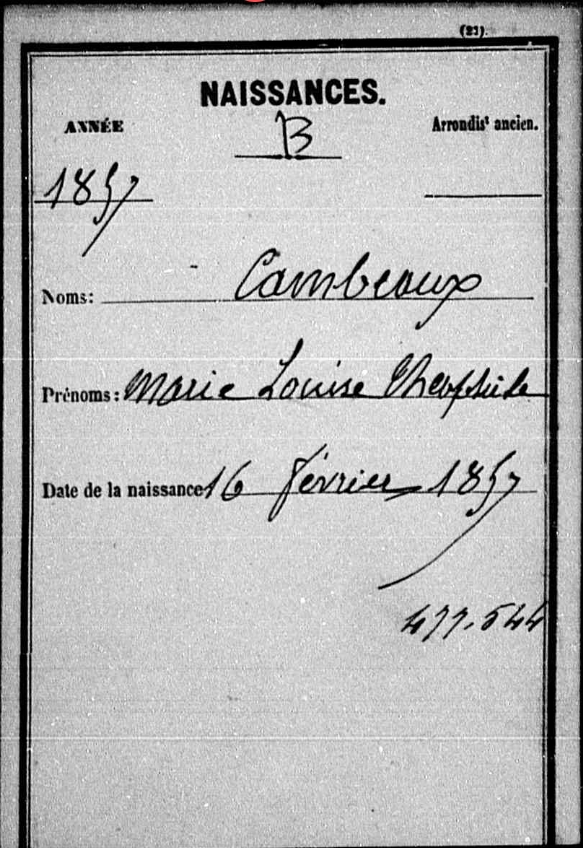 (23).
NAISSANCES.
ANNÉE B Arrondist ancien.
1857
Noms: Cambeaux
Prénoms: Marie Louise Théophile
Date de la naissance 16 février 1857
477.544